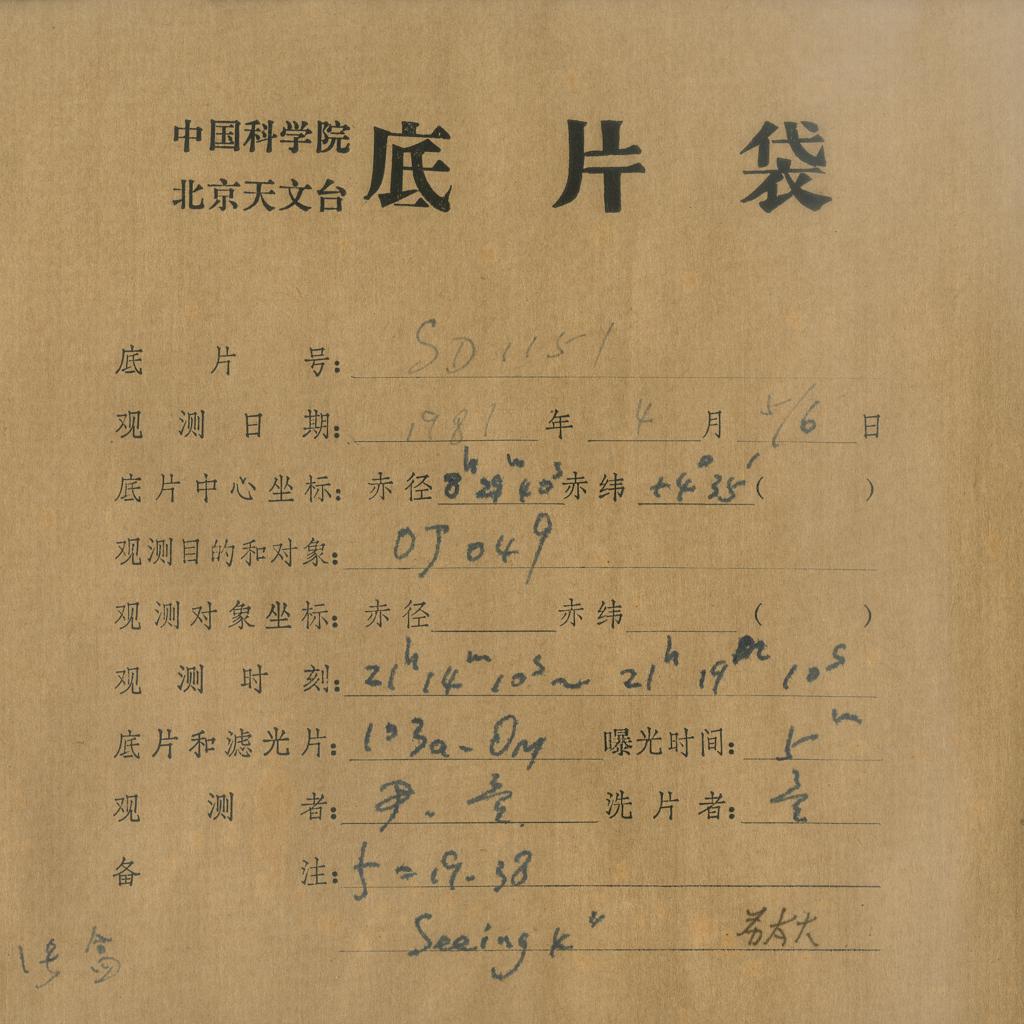 中国科学院
北京天文台
底片袋
底片号: SD1151
观测日期: 1981年4月5/6日
底片中心坐标: 赤径 8h29m40s 赤纬 +4°35′( )
观测目的和对象: OJ 049
观测对象坐标: 赤径 赤纬 ( )
观测时刻: 21h14m10s ~ 21h19m10s
底片和滤光片: 103a-O 曝光时间: 5m
观测者: 尹. 洗片者:
备注: = 19.38
Seeing
1号盒